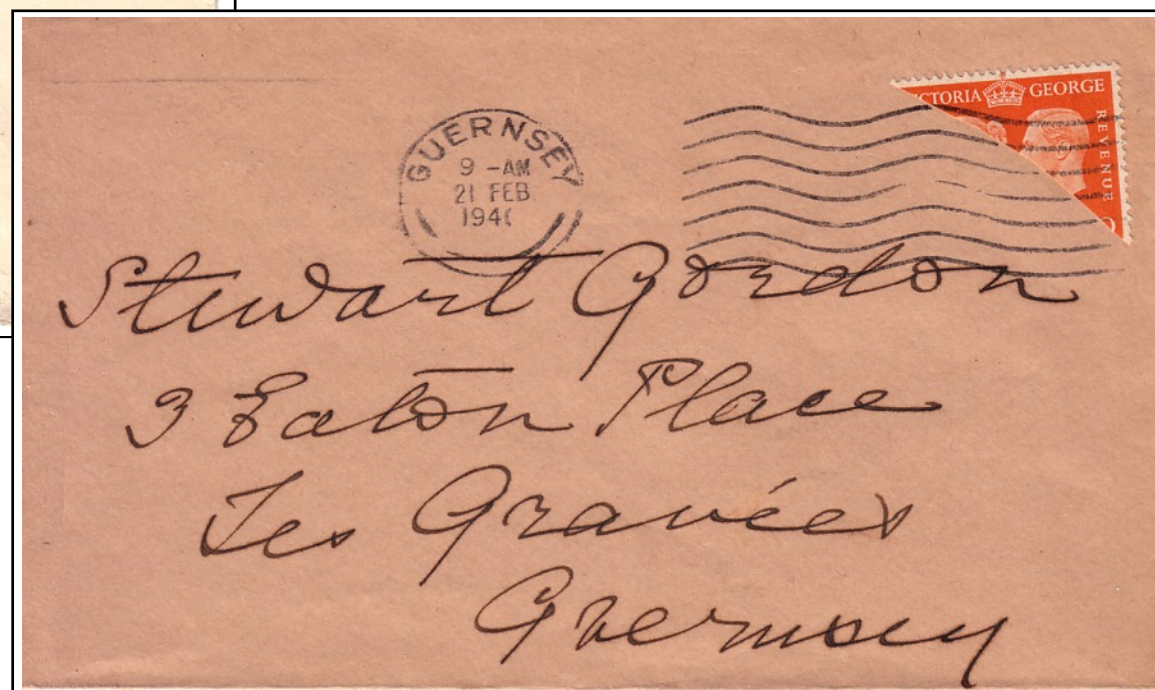 GUERNSEY
9 - AM
21 FEB
194
CTORIA GEORGE
REVENUE
Stewart Gordon
3 Eaton Place
Les Gravées
Guernsey